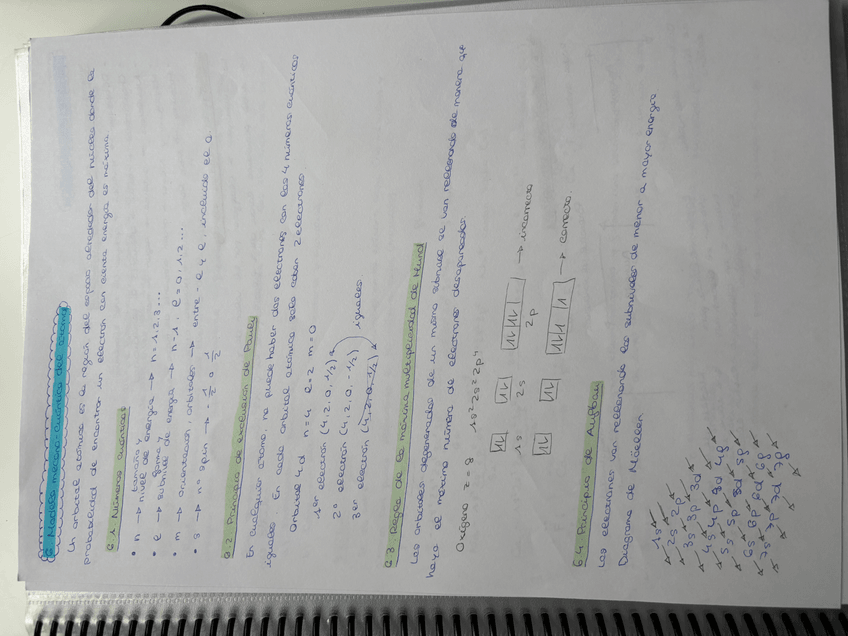 6 Modelo mecano-cuántico del átomo
Un orbital atómico es la región del espacio alrededor del núcleo donde la
probabilidad de encontrar un electrón con cierta energía es máxima
6.1 Números cuánticos
• n → tamaño y nivel de energía → n = 1, 2, 3...
• l → forma y subnivel de energía → n-1, l = 0, 1, 2...
• m → orientación, orbitales → entre -l y l, incluido el 0
• s → nº spin → -1/2 o 1/2
6.2 Principio de exclusión de Pauli
En cualquier átomo, no puede haber dos electrones con los 4 números cuánticos
iguales. En cada orbital atómico solo caben 2 electrones
Orbital 4d n=4 l=2 m=0
1er electrón (4, 2, 0, 1/2)
2º electrón (4, 2, 0, -1/2) iguales
3er electrón (4, 2, 0, 1/2)
6.3 Regla de la máxima multiplicidad de Hund
Los orbitales degenerados de un mismo subnivel se van rellenando de manera que
haya el máximo número de electrones desapareados.
Oxígeno z = 8 1s² 2s² 2p⁴
→ incorrecto
1s 2s 2p
→ correcto.
6.4 Principio de Aufbau
Los electrones van rellenando los subniveles de menor a mayor energía
Diagrama de Möeller
1s
2s 2p
3s 3p 3d
4s 4p 4d 4f
5s 5p 5d 5f
6s 6p 6d 6f
7s 7p 7d 7f